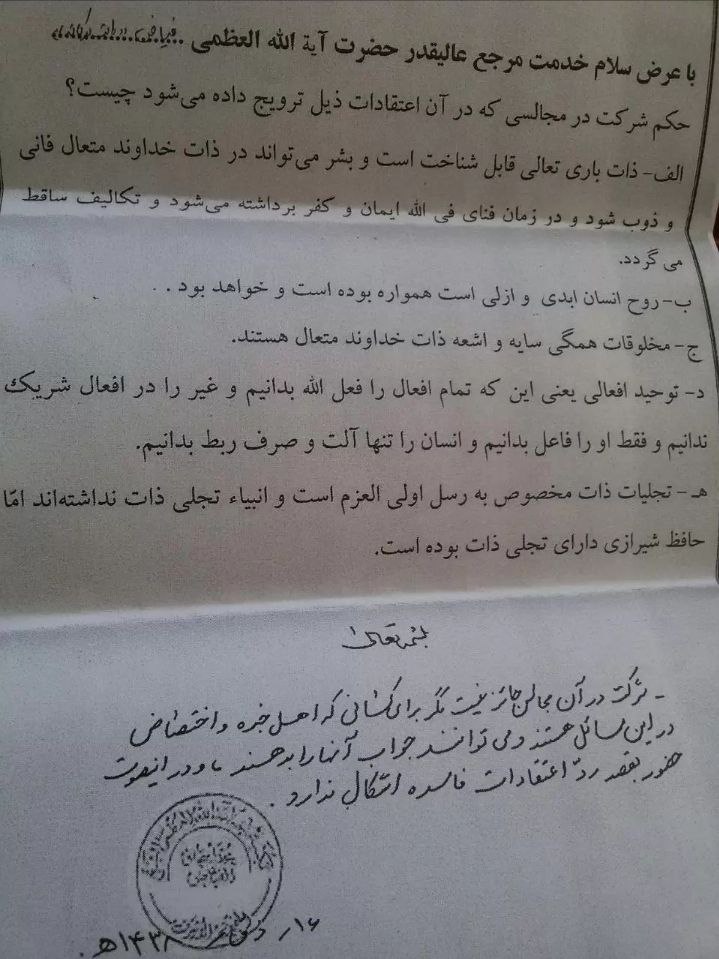 با عرض سلام خدمت مرجع عالیقدر حضرت آیة الله العظمی ..فیاض
حکم شرکت در مجالسی که در آن اعتقادات ذیل ترویج داده می‌شود چیست؟
الف- ذات باری تعالی قابل شناخت است و بشر می‌تواند در ذات خداوند متعال فانی
و ذوب شود و در زمان فنای فی الله ایمان و کفر برداشته می‌شود و تکالیف ساقط
می گردد.
ب- روح انسان ابدی و ازلی است همواره بوده است و خواهد بود . .
ج- مخلوقات همگی سایه و اشعه ذات خداوند متعال هستند.
د- توحید افعالی یعنی این که تمام افعال را فعل الله بدانیم و غیر را در افعال شریک
ندانیم و فقط او را فاعل بدانیم و انسان را تنها آلت و صرف ربط بدانیم.
هـ - تجلیات ذات مخصوص به رسل اولی العزم است و انبیاء تجلی ذات نداشته‌اند امّا
حافظ شیرازی دارای تجلی ذات بوده است.
بسمه تعالی
- شرکت در آن مجالس جائز نیست مگر برای کسانی که اهل خبره و اختصاص
در این مسائل هستند و می توانند جواب آنها را بدهند و در اینصورت
حضور بقصد ردّ اعتقادات فاسده اشکال ندارد .
۱۴۳۸هـ.